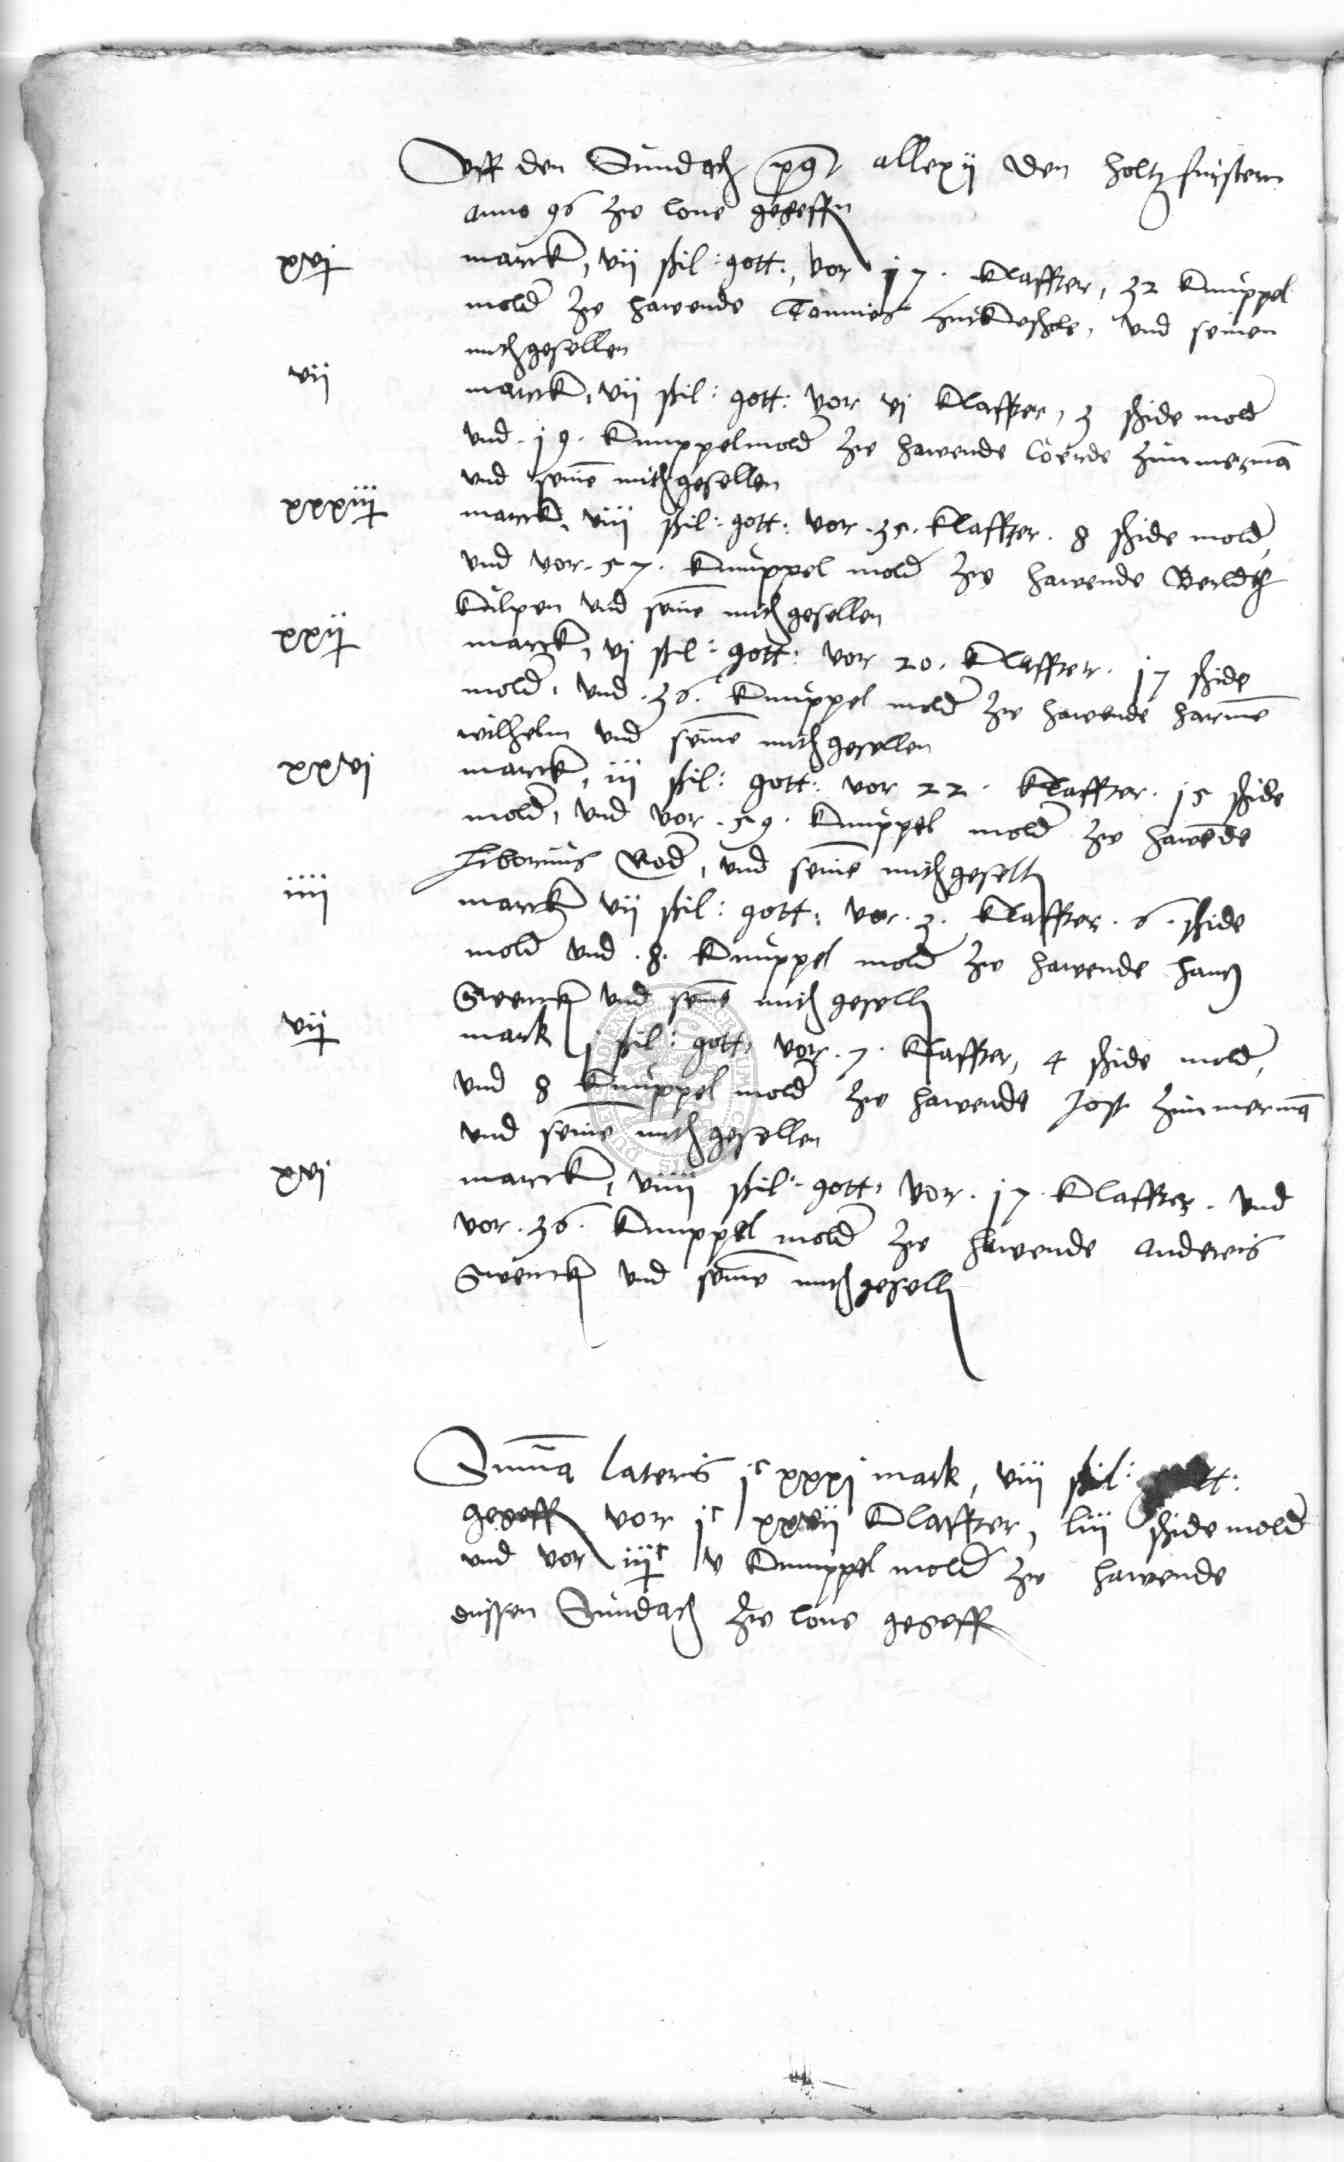 Uff den Sundach p9 allexii den holtzfurstern
anno 96 zw lone gegeffn
xvj marck, vii schil: gott:, vor j7. Klaffter, 32 Knuppel
mold zw hawende Tonnies und seinen
mithgesellen
vii marck, vii schil: gott: vor vj Klaffter, 3 schide mold
und. j9. Knuppelmold zw hawende Coerde Zimmermā
und seinē mithgesellen
xxxiij marck, viii schil: gott: vor. 35. Klaffter. 8 schide mold,
und vor. 57. Knuppel mold zw hawende
Kulpen und seinē mithgesellen
xxij marck, vj schil: gott: vor 20. Klaffter. j7 schide
mold, und. 36. Knuppel mold zw hawende harmē
wilhelm und seinē mithgesellen
xxvj marck, iii schil: gott: vor 22. Klaffter. j5 schide
mold, und vor. 59. Knuppel mold zw hawēde
liborius Rod, und seinē mithgesell
iiii marck vii schil: gott: vor. 3. Klaffter. 6. schide
mold und. 8. Knuppel mold zw hawende hans
Swenck und seinē mith gesell
vij mark j schil: gott: vor. 7. Klaffter, 4 schide mold,
und 8 Knuppel mold zw hawende Jost Zimmermā
und seinē mith gesellen
xvj marck, viiii schil: gott: vor. j7. Klaffter. und
vor. 36. Knuppel mold zw hawende andrewis
Swenck und seinē mithgesell
Summa lateris jc xxxj mark, viii schil:
gegeff vor jc xxvii Klaffter, liii schide mold
und vor iijc lv Knuppel mold zw hawende
dussen Sundach zw lone gegeff